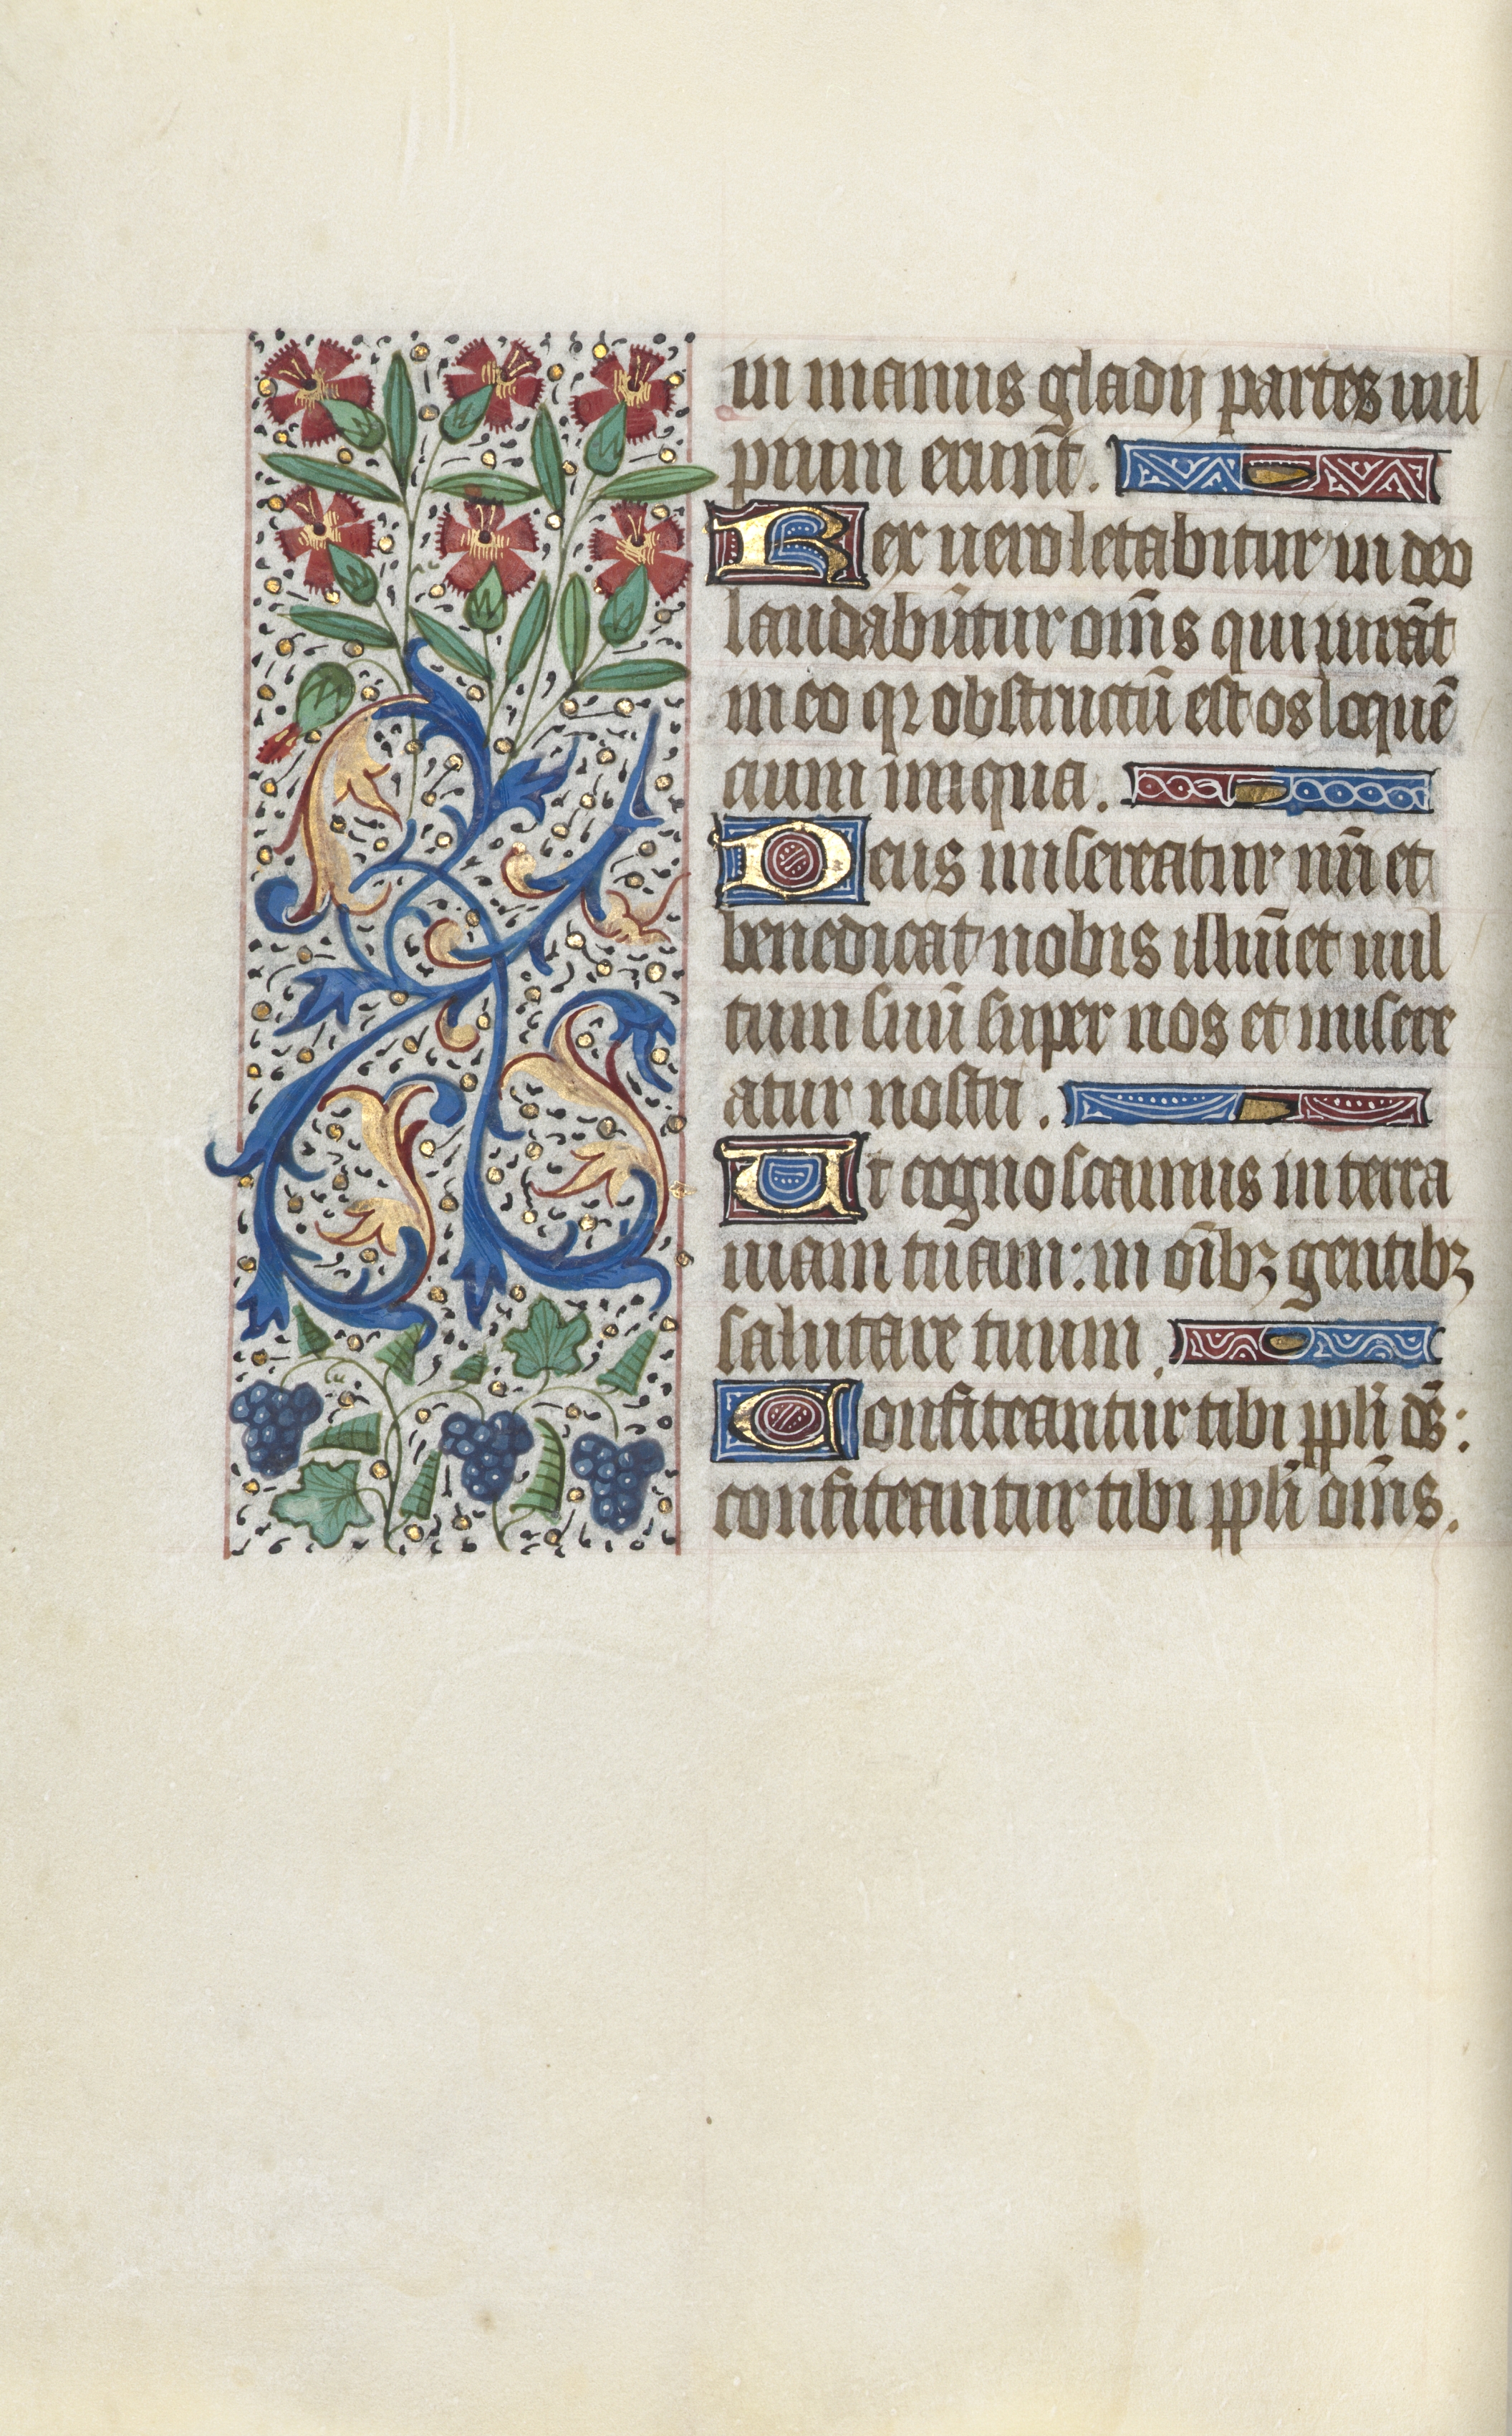 in manus gladij partes uul
pium erunt̄.
Rex uero letabitur in deo
laudabūtur om̄s qui iurāt
in eo qꝛ obstructū est os loquē
cium iniqua.
Deus misereatur nr̄i et
benedicat nobis illuīet uul
tum suū super nos et misere
atur nostri.
Ut cognoscamus in terra
uiam tuam: in oībꝫ gentibꝫ
salutare tuum.
Confiteantur tibi ppl̄i ds̄:
confiteantur tibi ppl̄i om̄s.